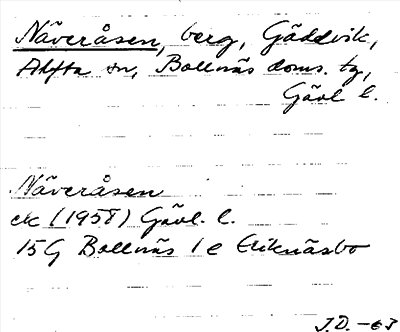 Näveråsen, berg, Gäddvik,
Alfta sn, Bollnäs doms. tg,
Gävl l.
Näveråsen
ek (1958) Gävl. l.
15G Bollnäs 1 e Eriknäsbo
J.D. -63